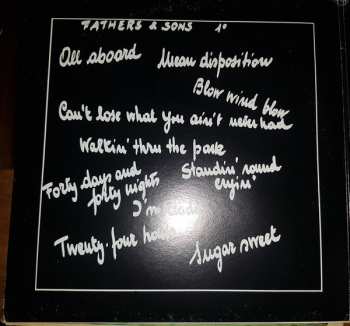 FATHERS & SONS 1°
All aboard Mean disposition
Blow wind blow
Can't lose what you ain't never had
Walkin' thru the park
Forty days and
forty nights
Standin' round
cryin'
I'm
Twenty-four
Sugar sweet